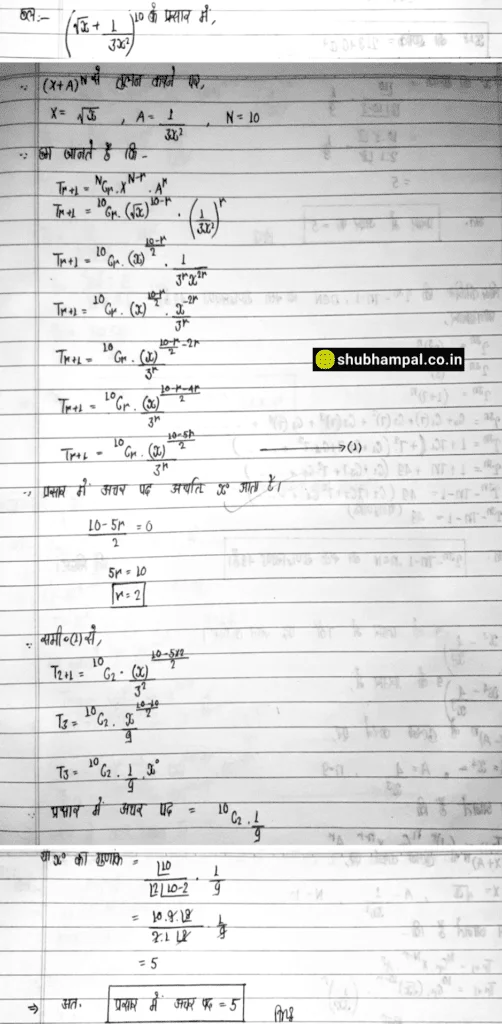 हल:- (√x + 1/3x²)¹⁰ के प्रसार में,
∵ (X+A)ᴺ से तुलना करने पर,
X = √x , A = 1/3x² , N = 10
∵ हम जानते हैं कि -
Tr+1 = ᴺCr . Xᴺ⁻ʳ . Aʳ
Tr+1 = ¹⁰Cr . (√x)¹⁰⁻ʳ . (1/3x²)ʳ
Tr+1 = ¹⁰Cr . (x)^((10-r)/2) . 1/(3ʳ x²ʳ)
Tr+1 = ¹⁰Cr . (x)^((10-r)/2) . x⁻²ʳ/3ʳ
Tr+1 = ¹⁰Cr . (x)^((10-r)/2 - 2r)/3ʳ
shubhampal.co.in
Tr+1 = ¹⁰Cr . (x)^((10-r-4r)/2)/3ʳ
Tr+1 = ¹⁰Cr . (x)^((10-5r)/2)/3ʳ → (1)
∵ प्रसार में अचर पद अर्थात x⁰ आता है।
(10-5r)/2 = 0
5r = 10
r = 2
∵ समी०(1) से,
T2+1 = ¹⁰C₂ . (x)^((10-5×2)/2)/3²
T₃ = ¹⁰C₂ . x^((10-10)/2)/9
T₃ = ¹⁰C₂ . 1/9 . x⁰
∵ प्रसार में अचर पद = ¹⁰C₂ . 1/9
या x⁰ का गुणांक = |10/(|2 |10-2) . 1/9
= 10.9.|8/(2.1 |8) . 1/9
= 5
⇒ अतः प्रसार में अचर पद = 5 Ans